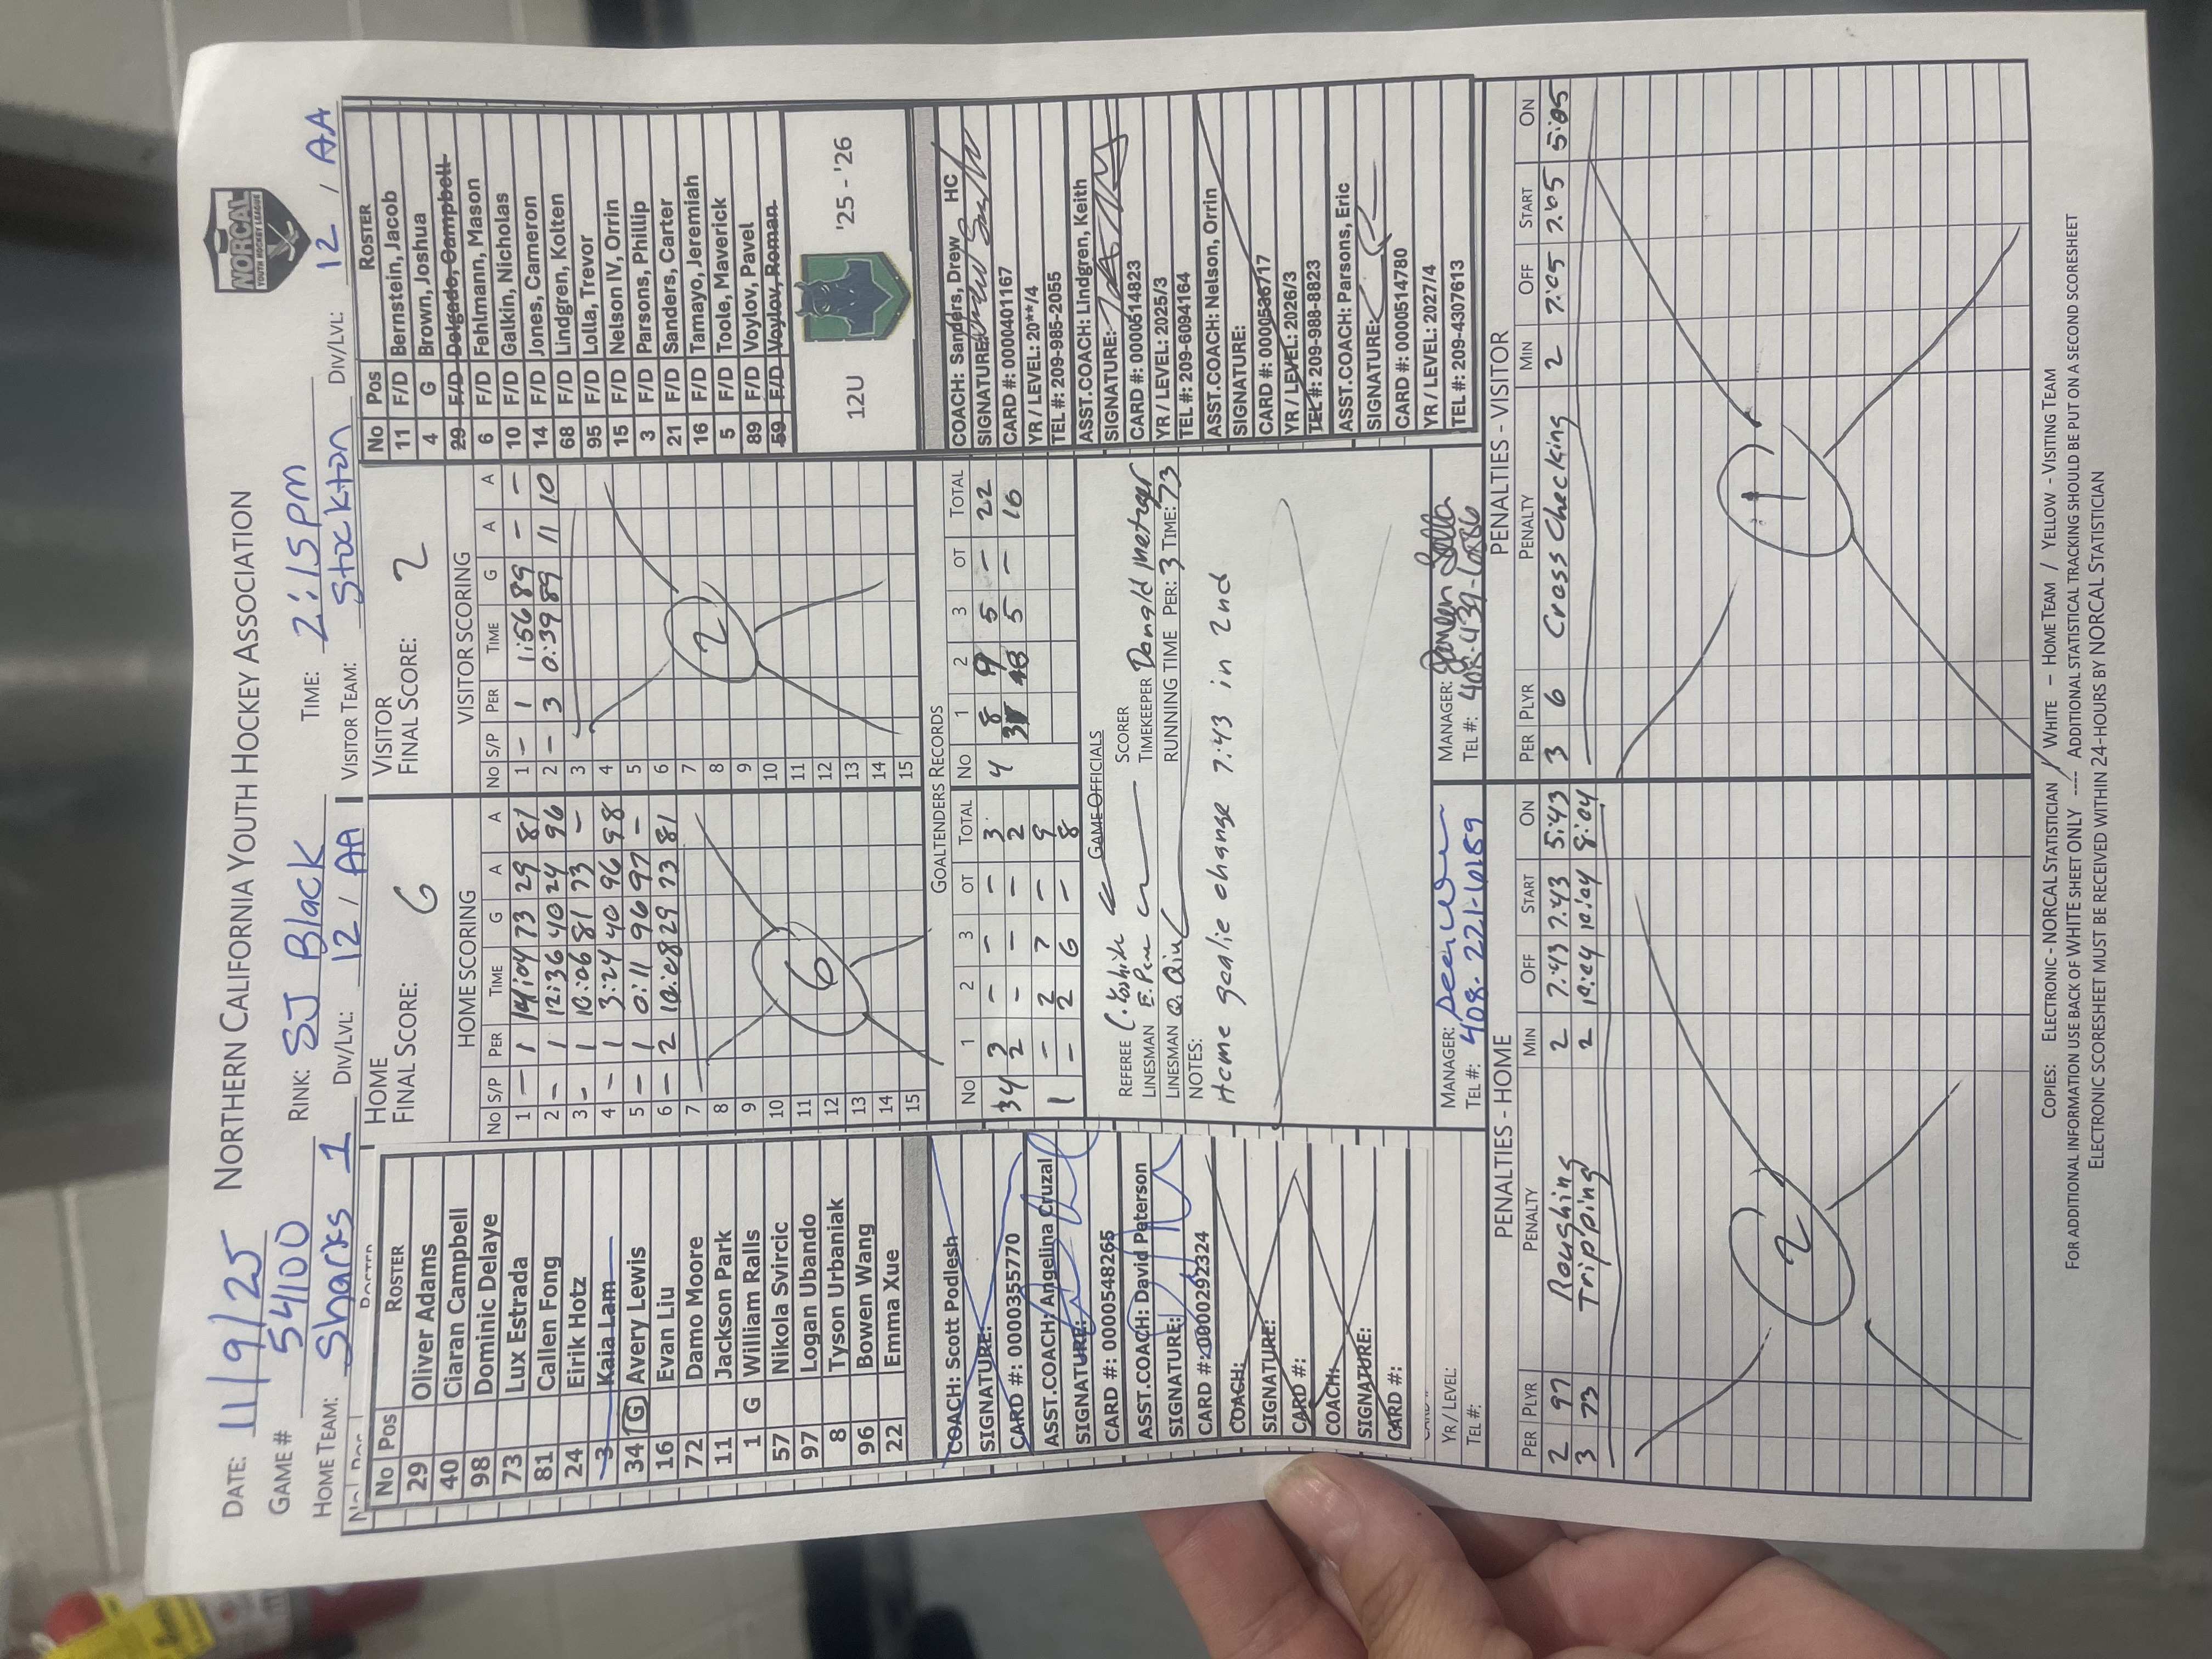 DATE: 11/9/25 NORTHERN CALIFORNIA YOUTH HOCKEY ASSOCIATION
NORCAL
YOUTH HOCKEY LEAGUE
GAME # 54100 RINK: SJ Black TIME: 2:15pm
HOME TEAM: Sharks 1 DIV/LVL: 12 / AA VISITOR TEAM: Stockton DIV/LVL: 12 / AA
No Pos ROSTER
29 Oliver Adams
40 Ciaran Campbell
98 Dominic Delaye
73 Lux Estrada
81 Callen Fong
24 Eirik Hotz
3 Kaia Lam
34 G Avery Lewis
16 Evan Liu
72 Damo Moore
11 Jackson Park
1 G William Ralls
57 Nikola Svircic
97 Logan Ubando
8 Tyson Urbaniak
96 Bowen Wang
22 Emma Xue
HOME
FINAL SCORE: 6
HOME SCORING
No S/P PER TIME G A A
1 - 1 14:04 73 29 81
2 - 1 12:36 40 24 96
3 - 1 10:06 81 73 -
4 - 1 3:24 40 96 98
5 - 1 0:11 96 97 -
6 - 2 10:08 29 73 81
7
8
9
10
11
12
13
14
15
6
VISITOR
FINAL SCORE: 2
VISITOR SCORING
No S/P PER TIME G A A
1 - 1 1:56 89 - -
2 - 3 0:39 89 11 10
3
4
5
6
7
8
9
10
11
12
13
14
15
2
No Pos ROSTER
11 F/D Bernstein, Jacob
4 G Brown, Joshua
29 F/D Delgado, Campbell
6 F/D Fehlmann, Mason
10 F/D Galkin, Nicholas
14 F/D Jones, Cameron
68 F/D Lindgren, Kolten
95 F/D Lolla, Trevor
15 F/D Nelson IV, Orrin
3 F/D Parsons, Phillip
21 F/D Sanders, Carter
16 F/D Tamayo, Jeremiah
5 F/D Toole, Maverick
89 F/D Voylov, Pavel
59 F/D Voylov, Roman
12U '25 - '26
COACH: Scott Podlesh
SIGNATURE:
CARD #: 0000355770
ASST.COACH: Angelina Cruzal
SIGNATURE:
CARD #: 0000548265
ASST.COACH: David Peterson
SIGNATURE:
CARD #: 0000292324
COACH:
SIGNATURE:
CARD #:
COACH:
SIGNATURE:
CARD #:
YR / LEVEL:
TEL #:
GOALTENDERS RECORDS
No 1 2 3 OT TOTAL No 1 2 3 OT TOTAL
34 3 - - - 3 4 8 9 5 - 22
2 - - - 2 3 8 5 - 16
1 - 2 7 - 9
- 2 6 - 8
GAME OFFICIALS
REFEREE SCORER
LINESMAN TIMEKEEPER Donald Metzger
LINESMAN Q. Qiu RUNNING TIME PER: 3 TIME: 73
NOTES:
Home goalie change 7:43 in 2nd
MANAGER:
TEL #: 408-221-6159
MANAGER:
TEL #:
COACH: Sanders, Drew HC
SIGNATURE:
CARD #: 0000401167
YR / LEVEL: 20**/4
TEL #: 209-985-2055
ASST.COACH: Lindgren, Keith
SIGNATURE:
CARD #: 0000514823
YR / LEVEL: 2025/3
TEL #: 209-6094164
ASST.COACH: Nelson, Orrin
SIGNATURE:
CARD #: 0000536717
YR / LEVEL: 2026/3
TEL #: 209-988-8823
ASST.COACH: Parsons, Eric
SIGNATURE:
CARD #: 0000514780
YR / LEVEL: 2027/4
TEL #: 209-4307613
PENALTIES - HOME
PER PLYR PENALTY MIN OFF START ON
2 97 Roughing 2 7:43 7:43 5:43
3 73 Tripping 2 10:04 10:04 8:04
2
PENALTIES - VISITOR
PER PLYR PENALTY MIN OFF START ON
3 6 Cross Checking 2 7:05 7:05 5:05
1
COPIES: ELECTRONIC - NORCAL STATISTICIAN / WHITE – HOME TEAM / YELLOW - VISITING TEAM
FOR ADDITIONAL INFORMATION USE BACK OF WHITE SHEET ONLY ---- ADDITIONAL STATISTICAL TRACKING SHOULD BE PUT ON A SECOND SCORESHEET
ELECTRONIC SCORESHEET MUST BE RECEIVED WITHIN 24-HOURS BY NORCAL STATISTICIAN